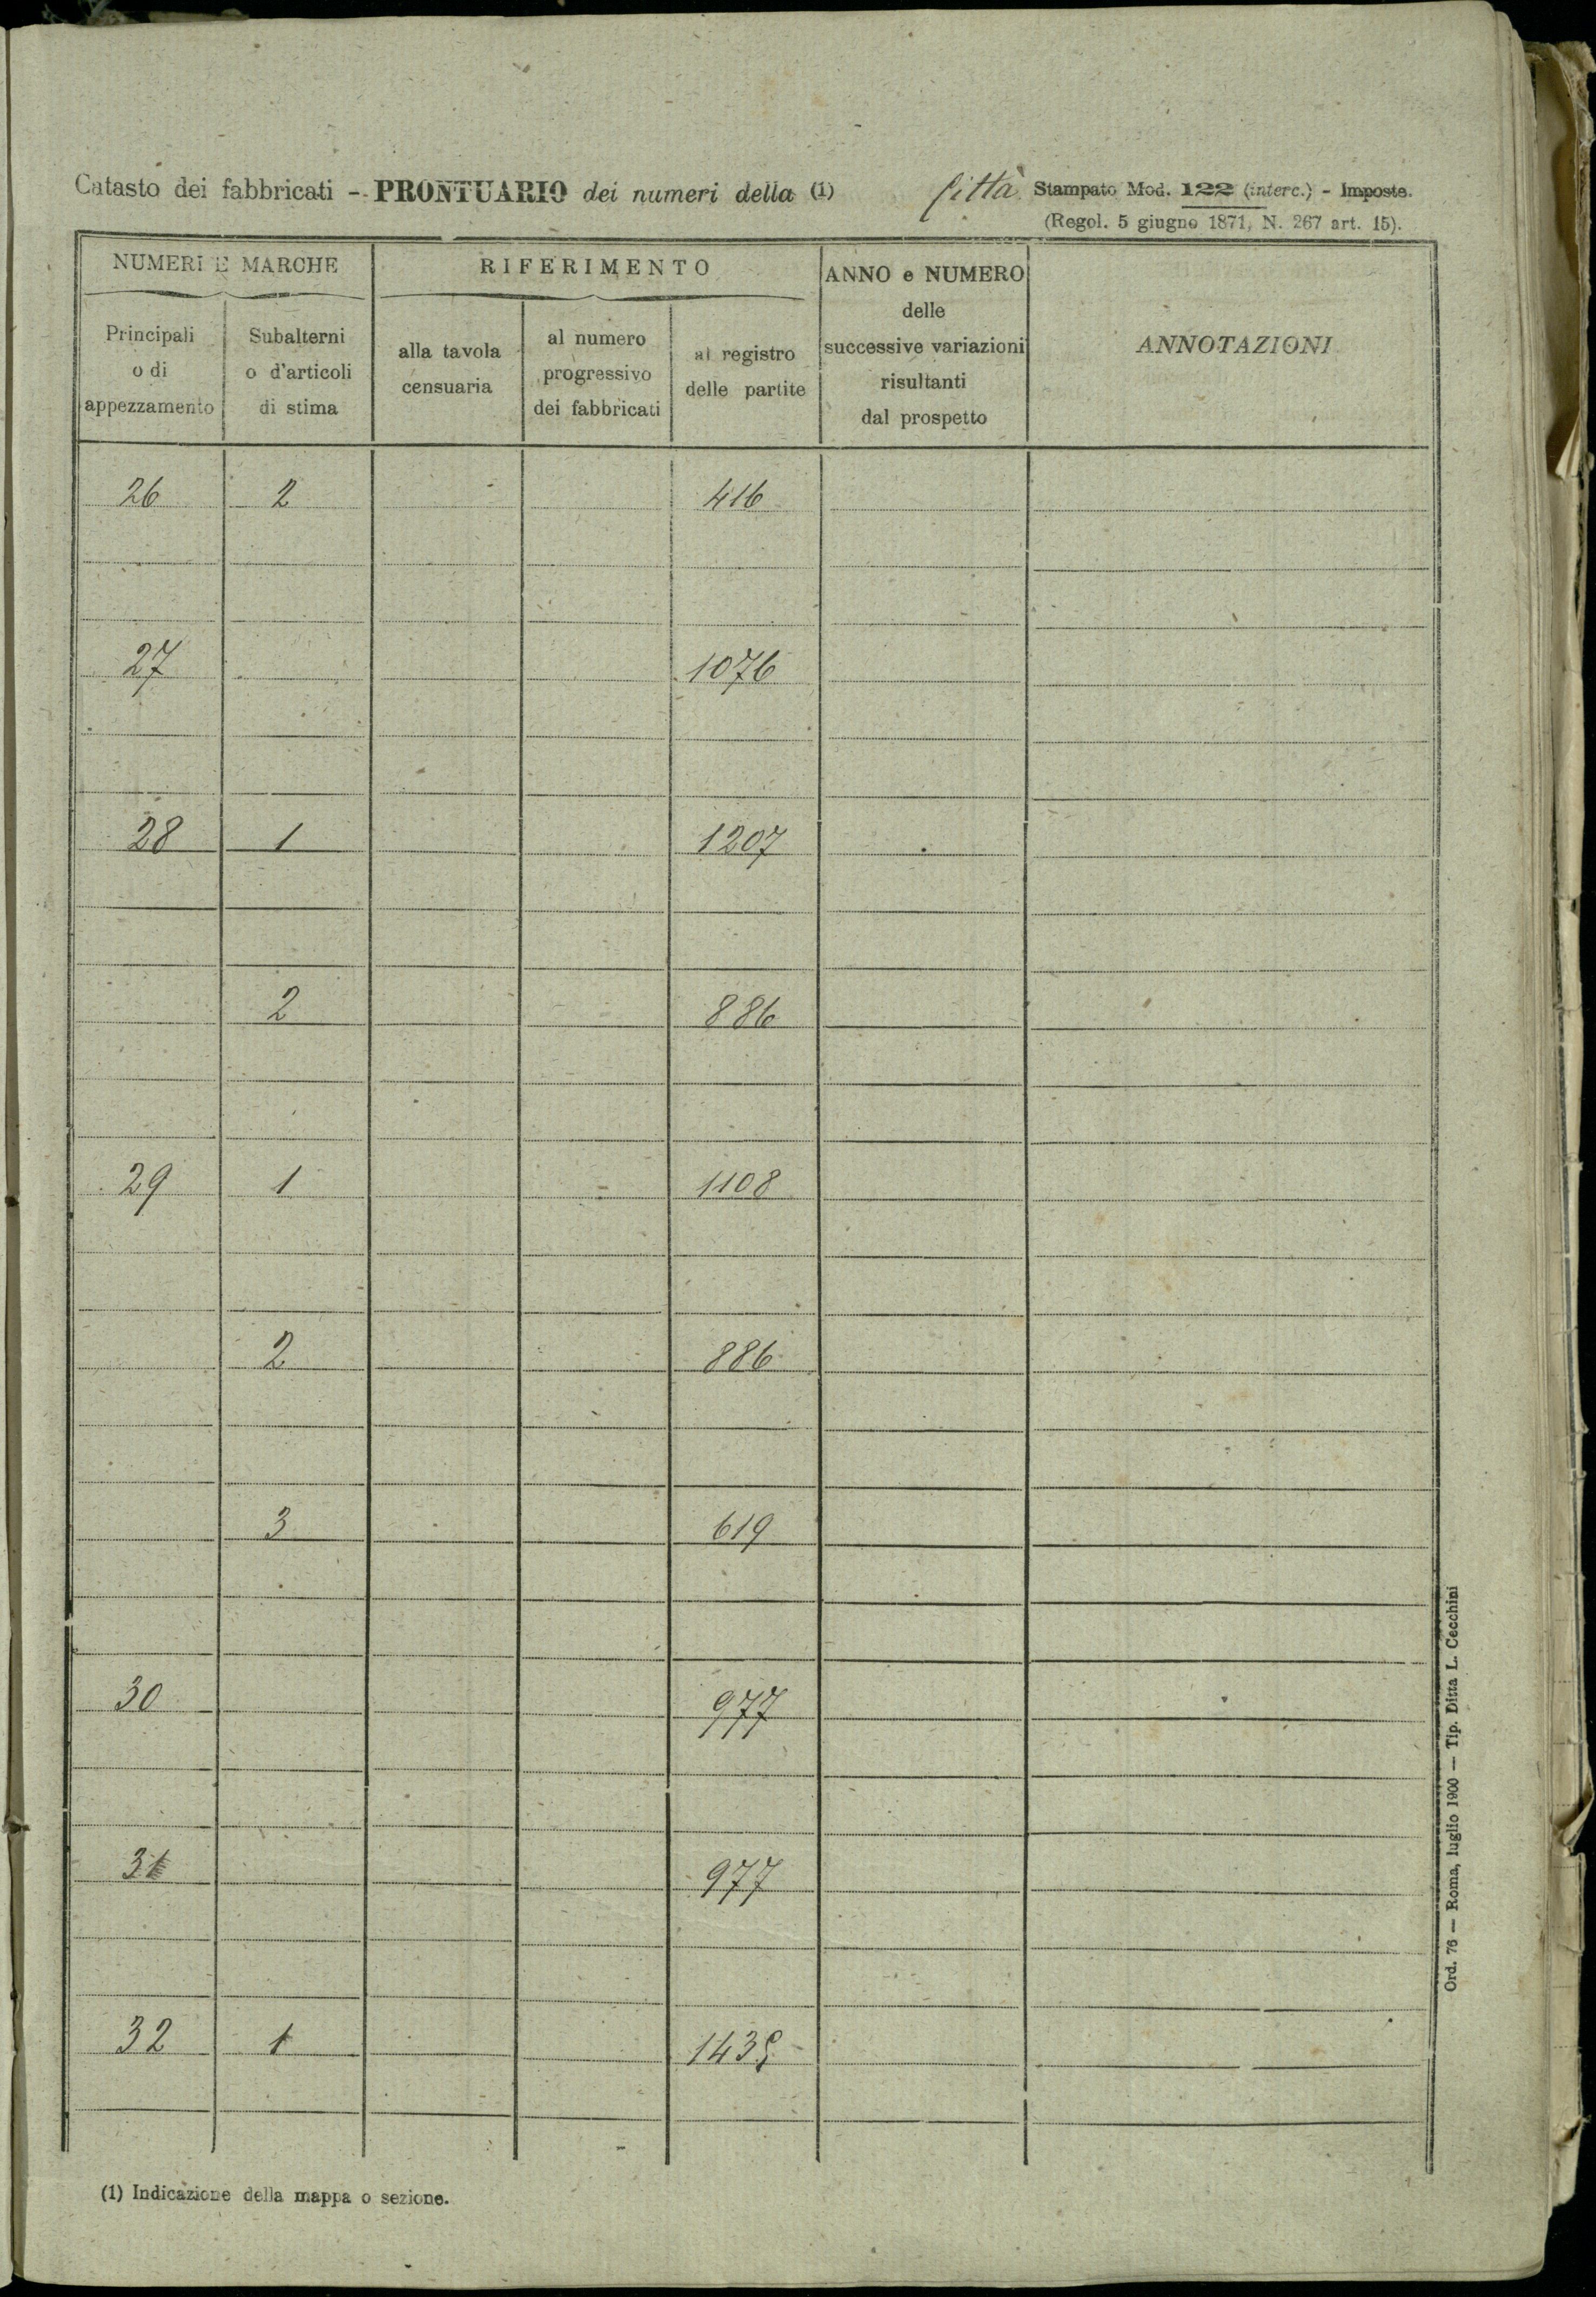 Catasto dei fabbricati - PRONTUARIO dei numeri della (1) Città Stampato Mod. 122 (interc.) - Imposte.
(Regol. 5 giugno 1871, N. 267 art. 15).
NUMERI E MARCHE
Principali o di appezzamento
Subalterni o d'articoli di stima
RIFERIMENTO
alla tavola censuaria
al numero progressivo dei fabbricati
al registro delle partite
ANNO e NUMERO delle successive variazioni risultanti dal prospetto
ANNOTAZIONI
26 2 416
27 1076
28 1 1207
2 886
29 1 1108
2 886
3 619
30 977
31 977
32 1
(1) Indicazione della mappa o sezione.
Ord. 76 — Roma, luglio 1900 — Tip. Ditta L. Cecchini